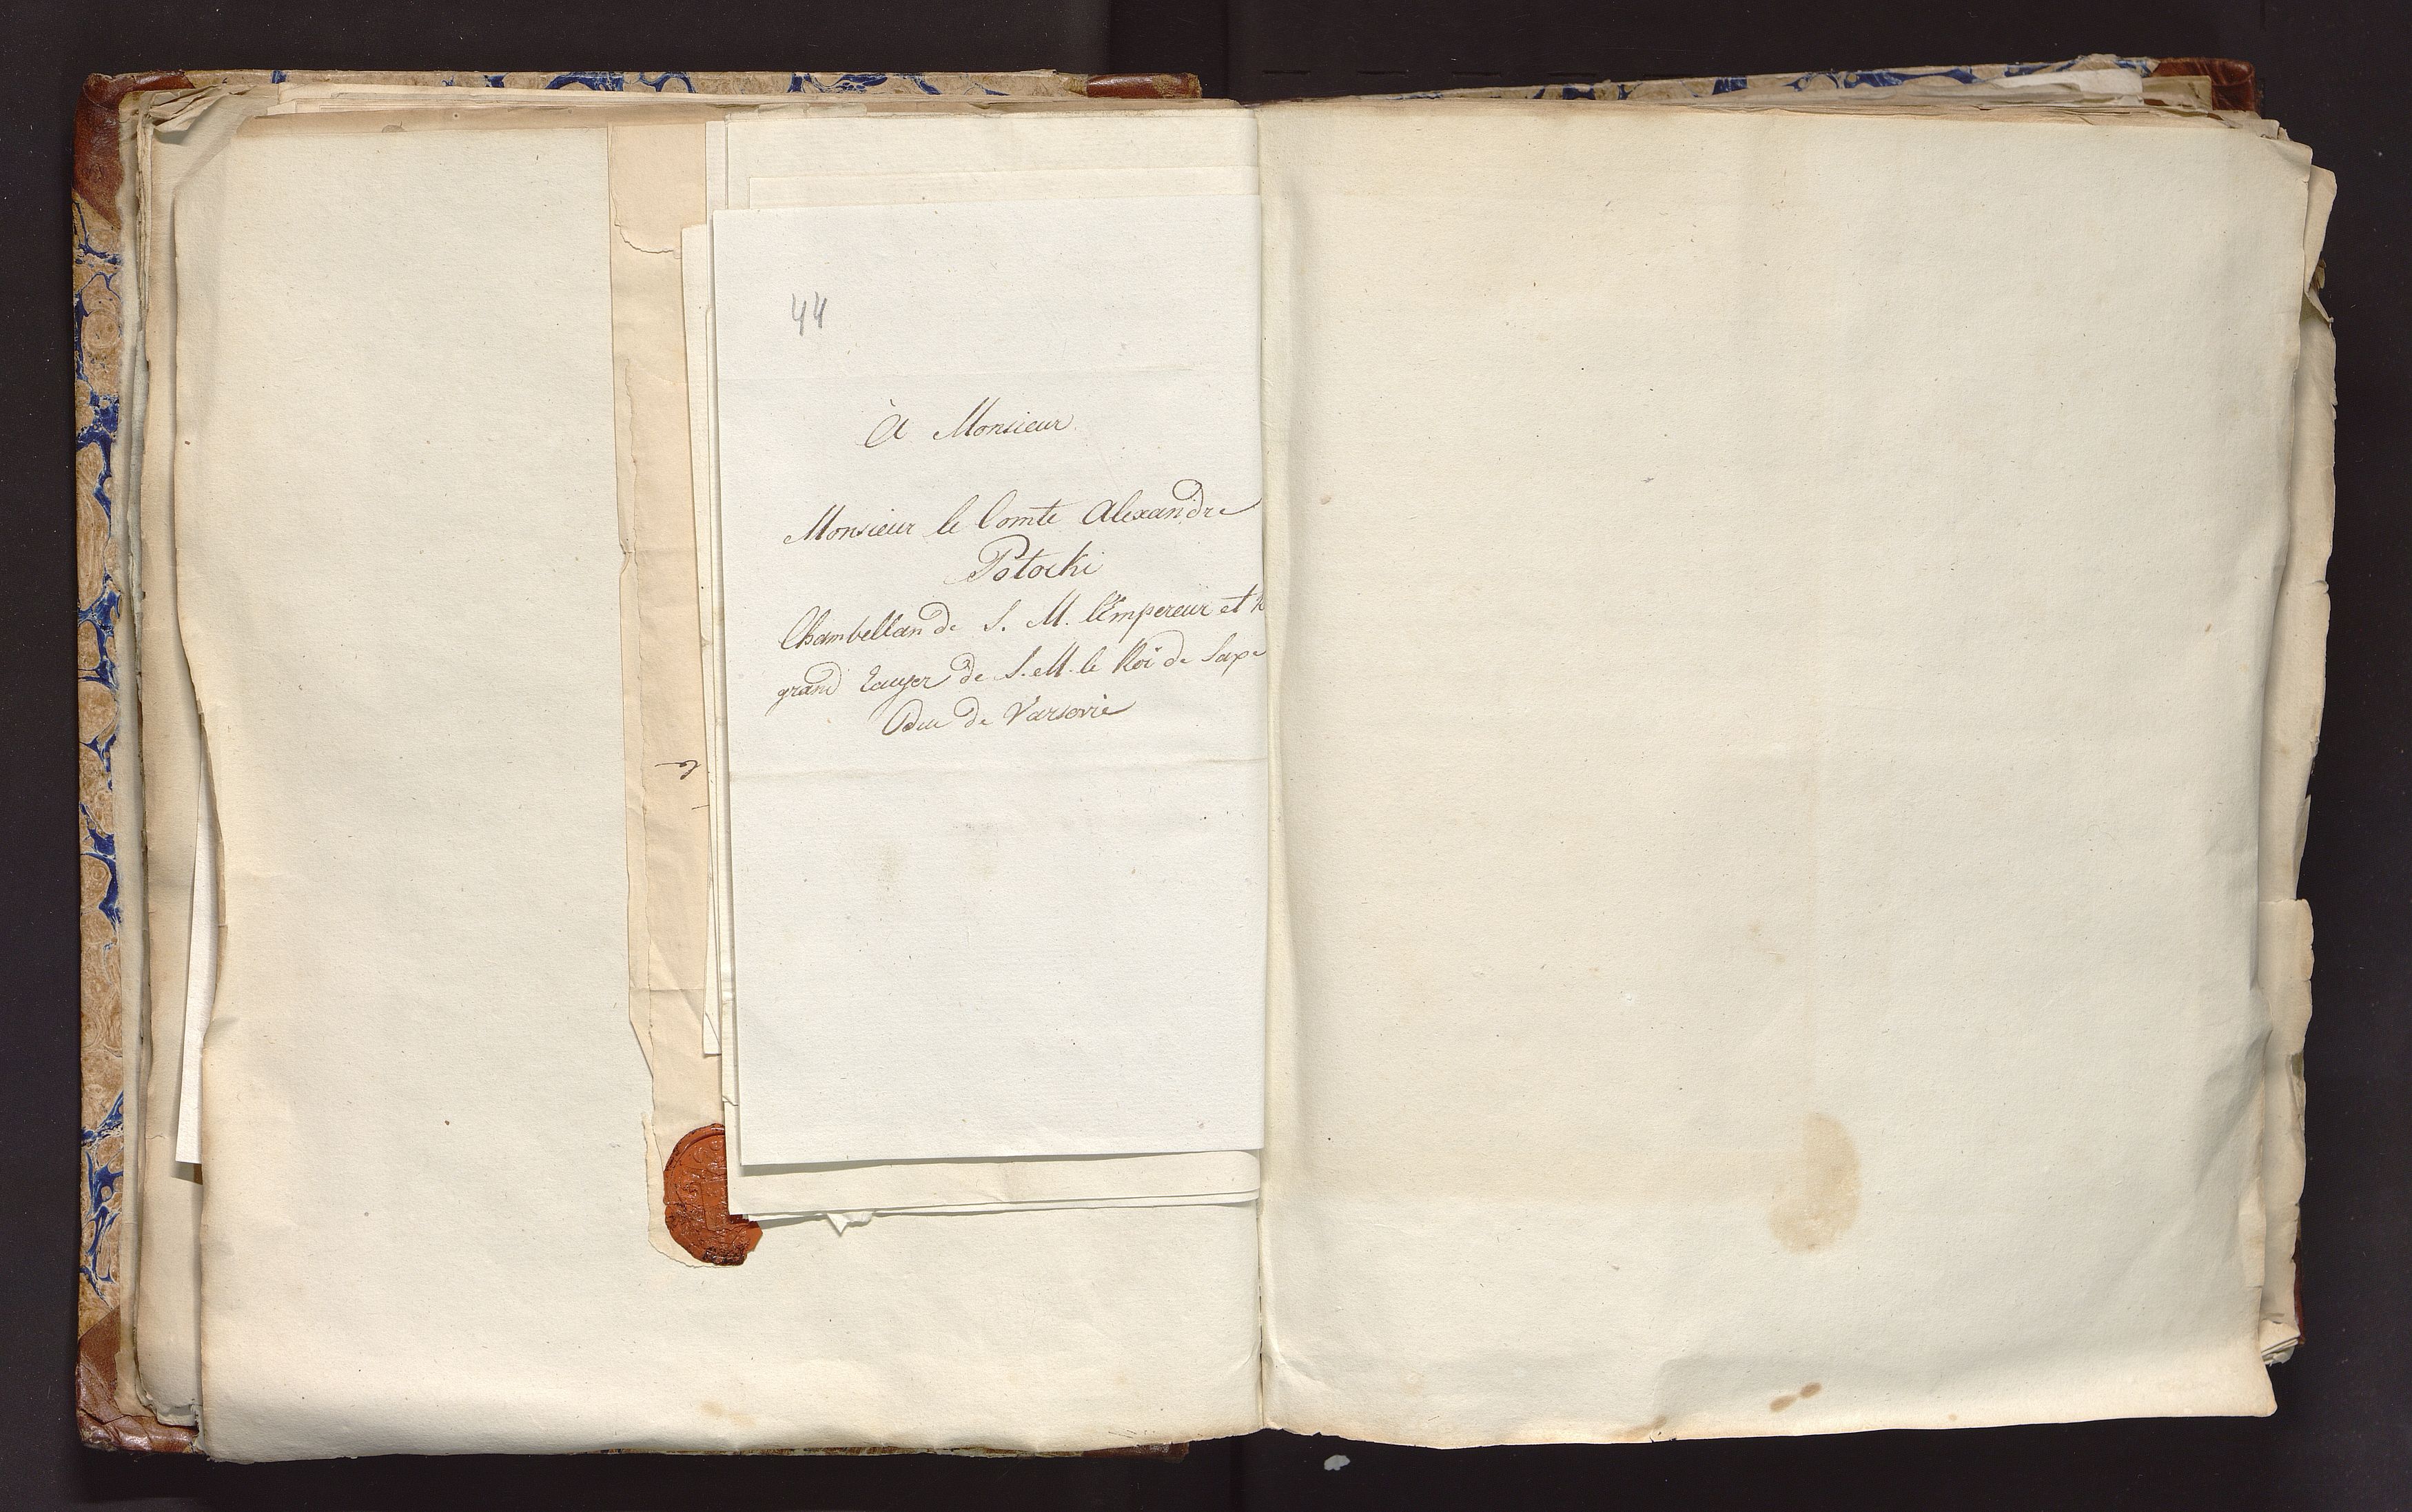 44
à Monsieur
Monsieur le Comte Alexandre
Potocki
Chambellan de S. M. l'Empereur et
grand Ecuyer de S. M. le Roi de Saxe
Duc de Varsovie